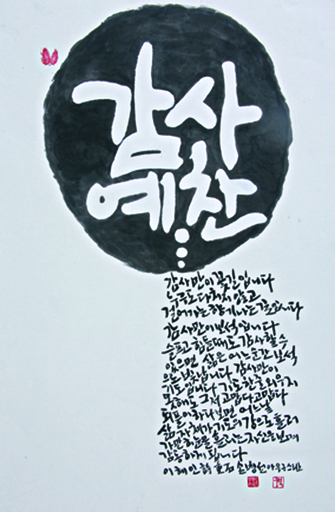 감사
예찬
감사만이 꽃길입니다
누구도 다치지 않고
걸어가는 향기나는 길입니다
감사만이 보석입니다
슬프고 힘들때도 감사할수
있으면 삶은 어느순간 보석
으로 빛납니다 감사만이
기도입니다 기도 한줄 외우지
못해도 그저 고맙다 고맙다
되풀이하다보면 어느날
삶 자체가 기도의 강으로 흘러
가만히 눈물 흘리는 자신을 보며
감동하게 됩니다
이해인